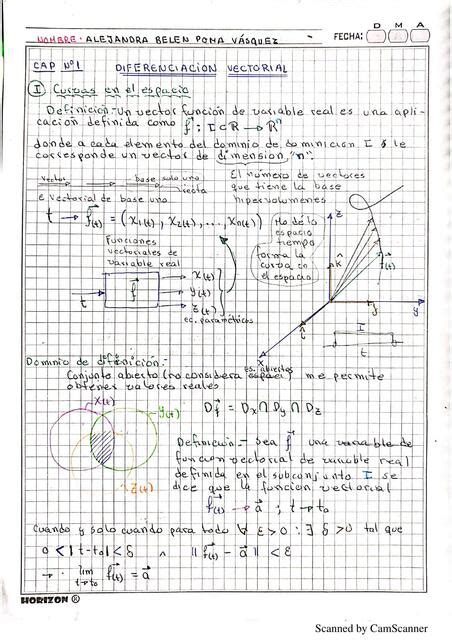 D M A
NOMBRE: ALEJANDRA BELEN POMA VÁSQUEZ FECHA:
CAP Nº1 DIFERENCIACION VECTORIAL
I Curvas en el espacio
Definición:- Un vector función de variable real es una apli-
cación definida como f⃗ : I⊂R → Rⁿ
donde a cada elemento del dominio de dominicion I se le
corresponde un vector de dimension "n".
vector base solo uno
recta
e vectorial de base uno
El número de vectores
que tiene la base
hipervolumenes
t → f⃗(t) = (x₁(t), x₂(t), ..., xₙ(t))
espacio
tiempo
forma la
curva en
el espacio
Funciones
vectoriales de
variable real
t f⃗ x(t)
y(t)
z(t)
ec. paramétricas
z
k
f⃗(t)
y
x
I
t
Dominio de definición:-
es. abiertos
Conjunto abierto (no considera) me permite
obtener valores reales
x(t)
y(t)
z(t)
Df⃗ = Dx ∩ Dy ∩ Dz
Definición:- Sea f⃗ una variable de
funcion vectorial de variable real
definida en el subconjunto I se
dice que la funcion vectorial
f⃗(t) → a⃗ ; t → t₀
Cuando y solo cuando para todo ∀ ε>0 : ∃ δ>0 tal que
0 < |t-t₀| < δ ∧ ‖f⃗(t) - a⃗‖ < ε
→ ∴ lim t→t₀ f⃗(t) = a⃗
HORIZON ®
Scanned by CamScanner